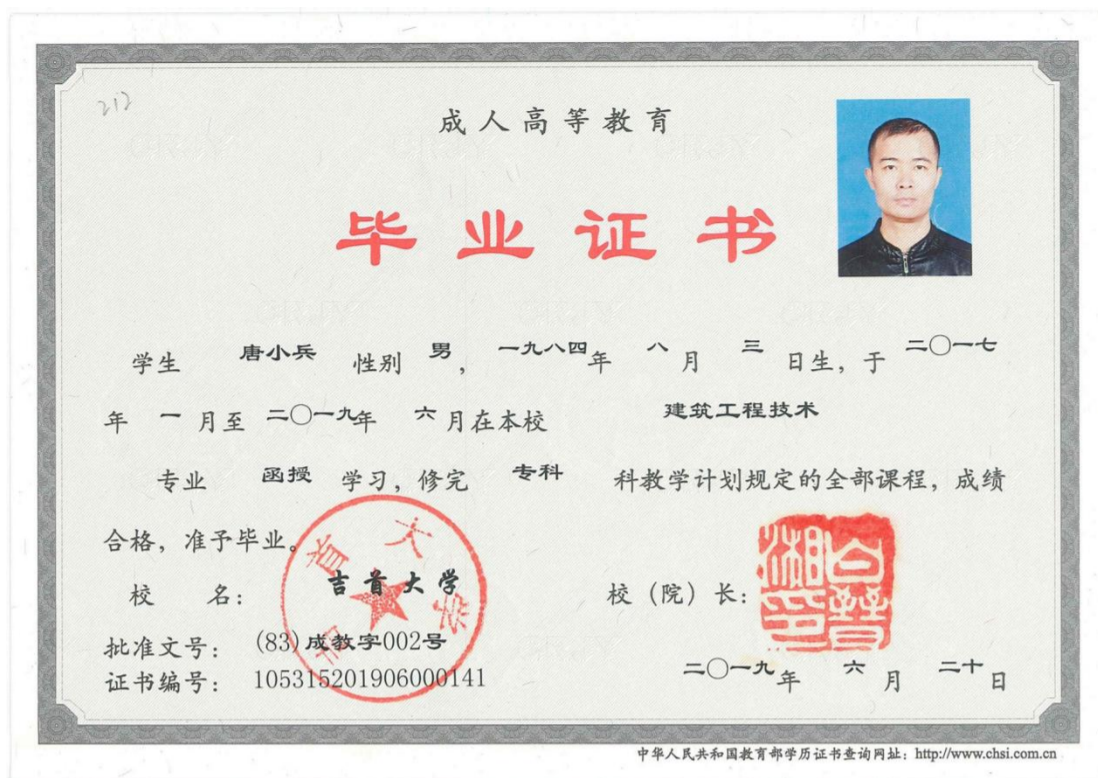 212
成人高等教育
毕业证书
学生 唐小兵 性别 男，一九八四年 八 月 三 日生，于 二〇一七
年 一 月至 二〇一九年 六 月在本校 建筑工程技术
专业 函授 学习，修完 专科 科教学计划规定的全部课程，成绩
合格，准予毕业。
吉首大学
校 名： 吉首大学 校（院）长：
白晋湘印
批准文号： (83)成教字002号
证书编号： 105315201906000141
二〇一九年 六 月 二十日
中华人民共和国教育部学历证书查询网址：http://www.chsi.com.cn